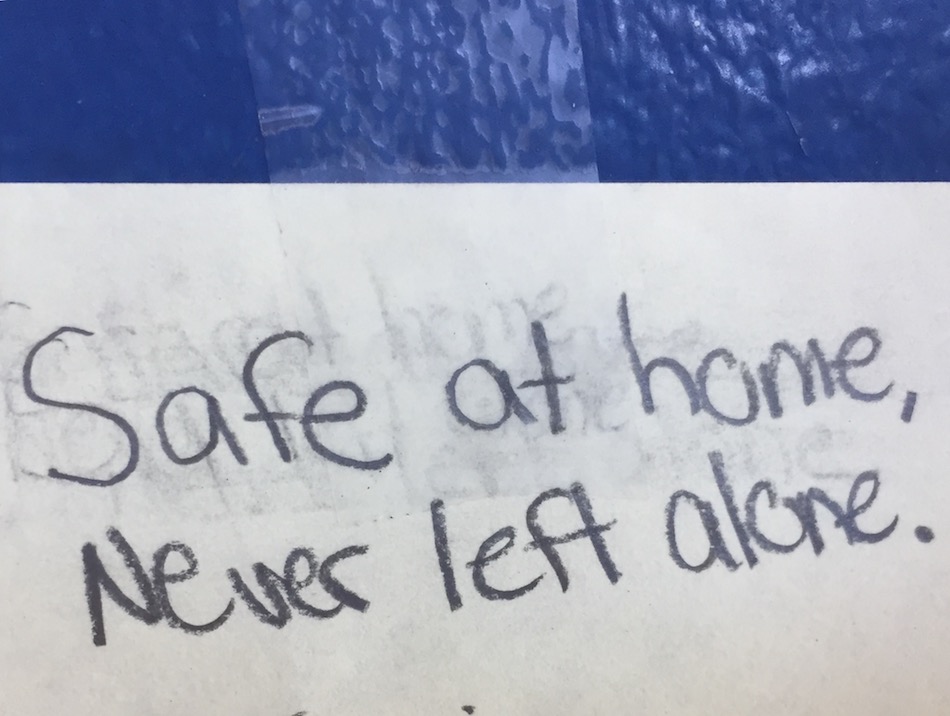 Safe at home,
Never left alone.